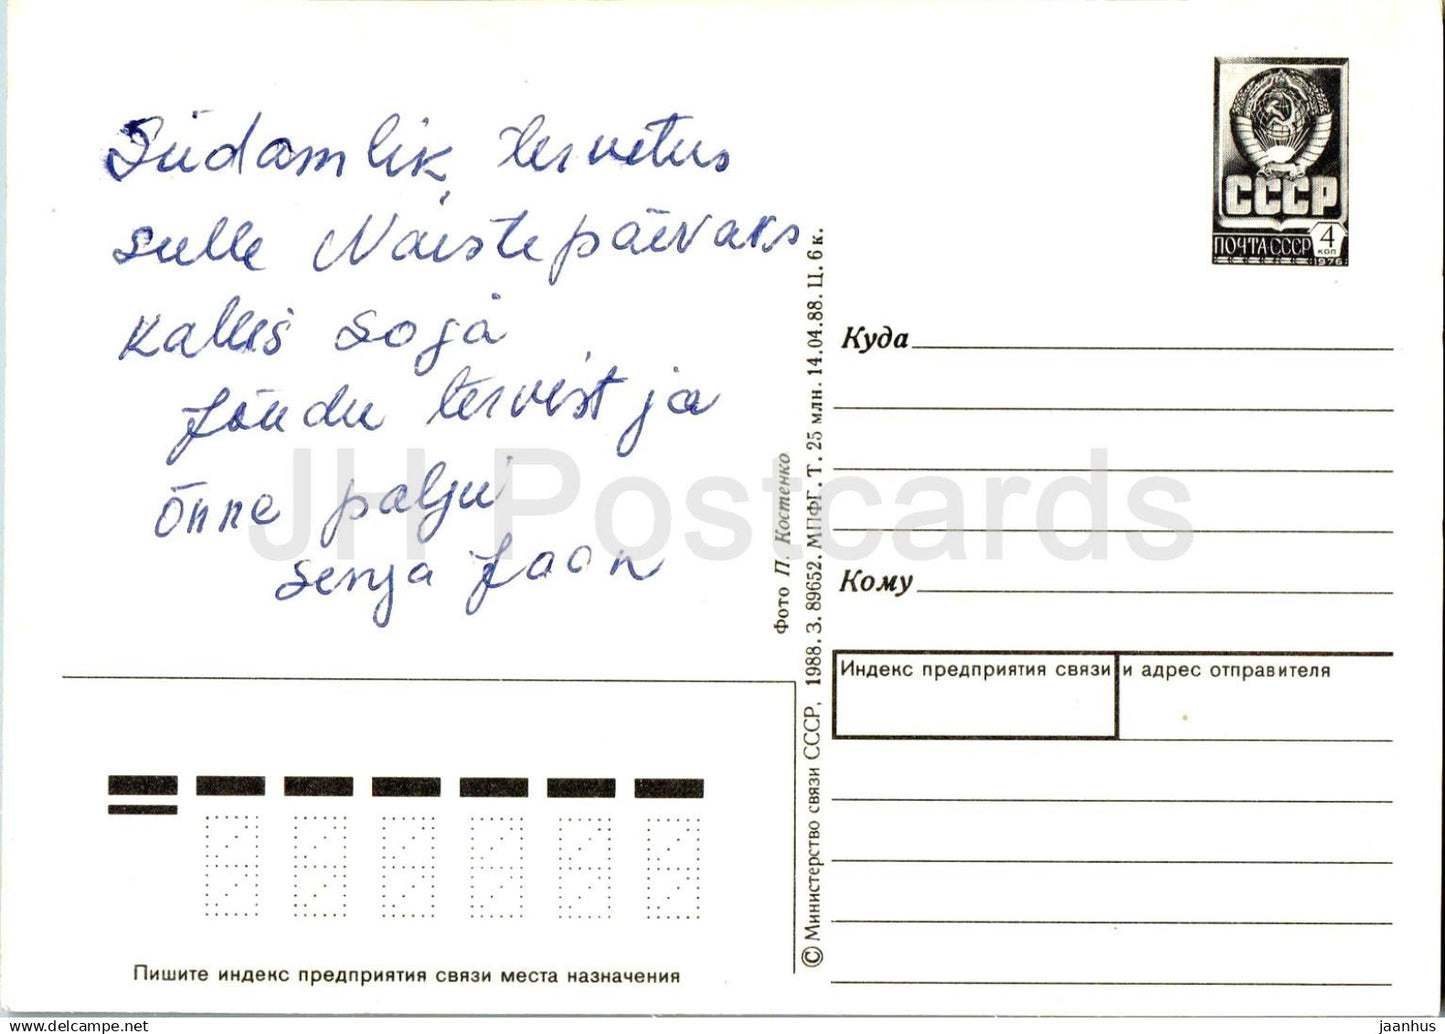 Südamlik tervetus
sulle Naistepäevaks
kallis Soja
Jõudu tervist ja
õnne palju
Senja Jaan
СССР
ПОЧТА СССР 4
коп
1976
Куда
Кому
Индекс предприятия связи и адрес отправителя
Фото П. Костенко
© Министерство связи СССР, 1988. З. 89652. МПФГ. Т. 25 млн. 14.04.88. Ц. 6 к.
Пишите индекс предприятия связи места назначения
JH Postcards
jaanhus © www.delcampe.net